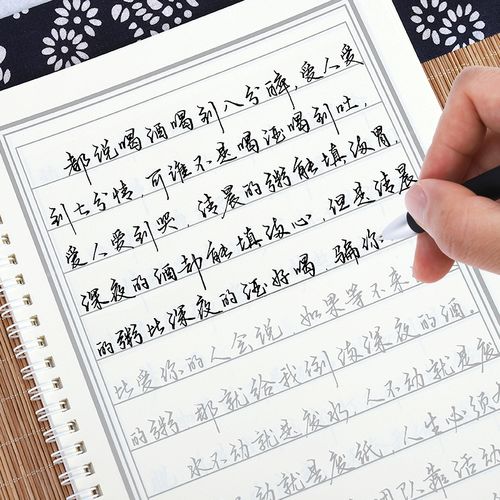 都说喝酒喝到八分醉，爱人爱
到七分情，可谁不是喝酒喝到吐，
爱人爱到哭，清晨的粥能填满胃，
深夜的酒却能填满心，但是清晨
的粥比深夜的酒好喝，骗你
比爱你的人会说，如果等不来
的粥，那就给我倒满深夜的酒。
水不动就是废水，人不动就是废
不动就是废纸，人生必须
靠活动